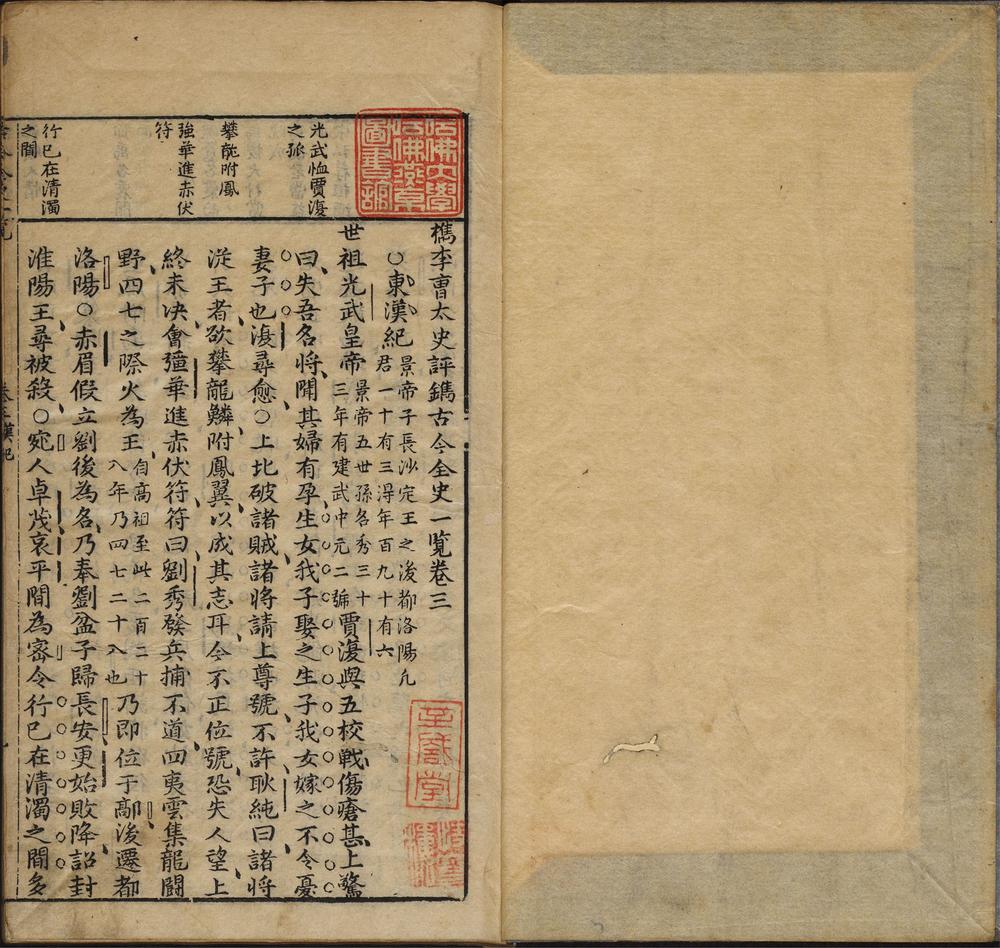 檇李曺太史評鐫古今全史一覽卷三
○東漢紀
景帝子長沙定王之後都洛陽凢
君一十有三淂年百九十有六
世祖光武皇帝
景帝五世孫名秀三十
三年有建武中元二號
賈復與五校戰傷瘡甚上驚
曰失吾名將聞其婦有孕生女我子娶之生子我女嫁之不令憂
妻子也復尋愈○上比破諸賊諸將請上尊號不許耿純曰諸將
從王者欲攀龍鱗附鳳翼以成其志耳今不正位號恐失人望上
終未决會彊華進赤伏符符曰劉秀發兵捕不道四夷雲集龍鬪
野四七之際火為王
自高祖至此二百二十
八年乃四七二十八也
乃即位于鄗後遷都
洛陽○赤眉假立劉後為名乃奉劉盆子歸長安更始敗降詔封
淮陽王尋被殺○宛人卓茂哀平間為密令行已在清濁之間多
光武恤賈復
之孤
攀龍附鳳
強華進赤伏
符
行已在清濁
之間
哈佛大學
哈佛燕京
圖書館
卷三漢紀